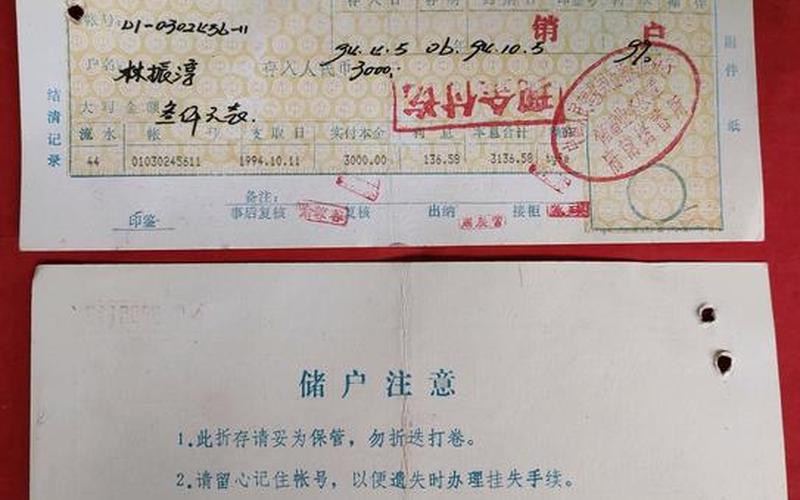 销 户
帐号: 01-0302456-11
94.4.5 06. 94.10.5 9%
户名 林振淳 存入人民币 3000.
现金付讫
大写金额 叁仟元整
结清记录
附件 纸
流水 帐 号 支取日 实付本金 利息 本息合计
44 01030245611 1994.10.11 3000.00 136.58 3136.58
备注:
印鉴 事后复核 复核 出纳 接柜
储户注意
1.此折存请妥为保管，勿折迭打卷。
2.请留心记住帐号，以便遗失时办理挂失手续。